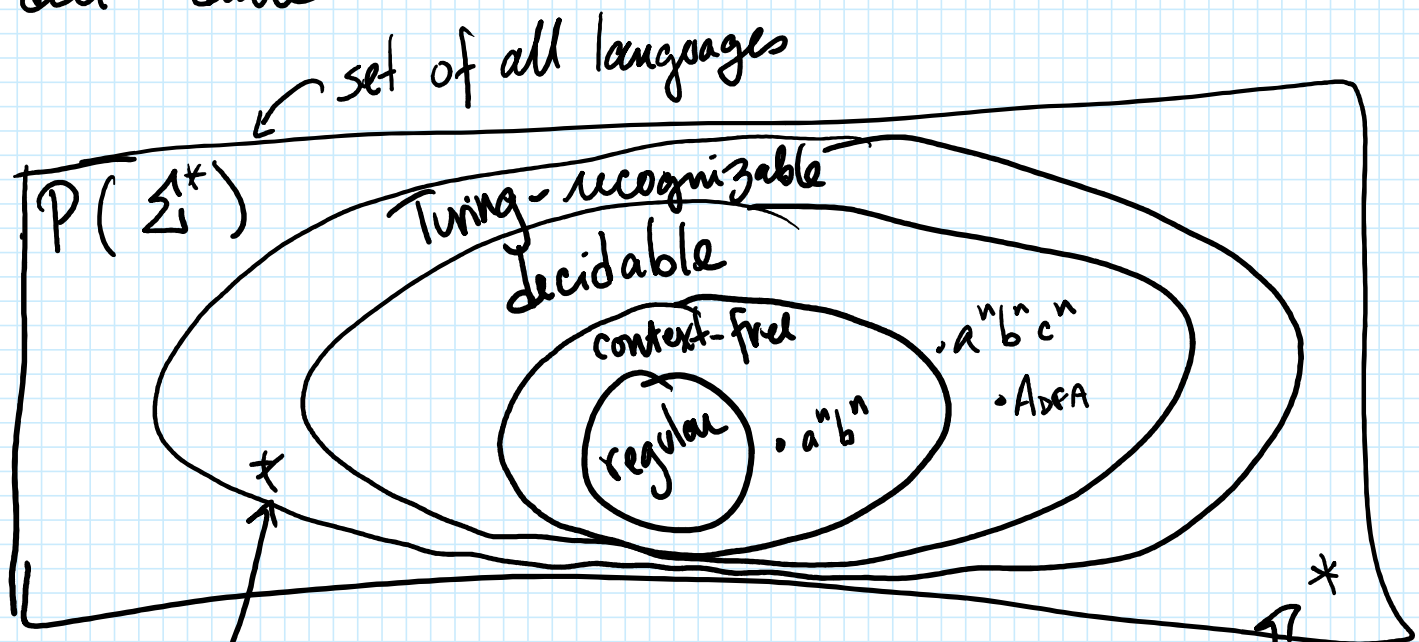 set of all languages
P(Σ*)
Turing-recognizable
decidable
context-free
regular
• aⁿbⁿ
• aⁿbⁿcⁿ
• A_DFA
*
*